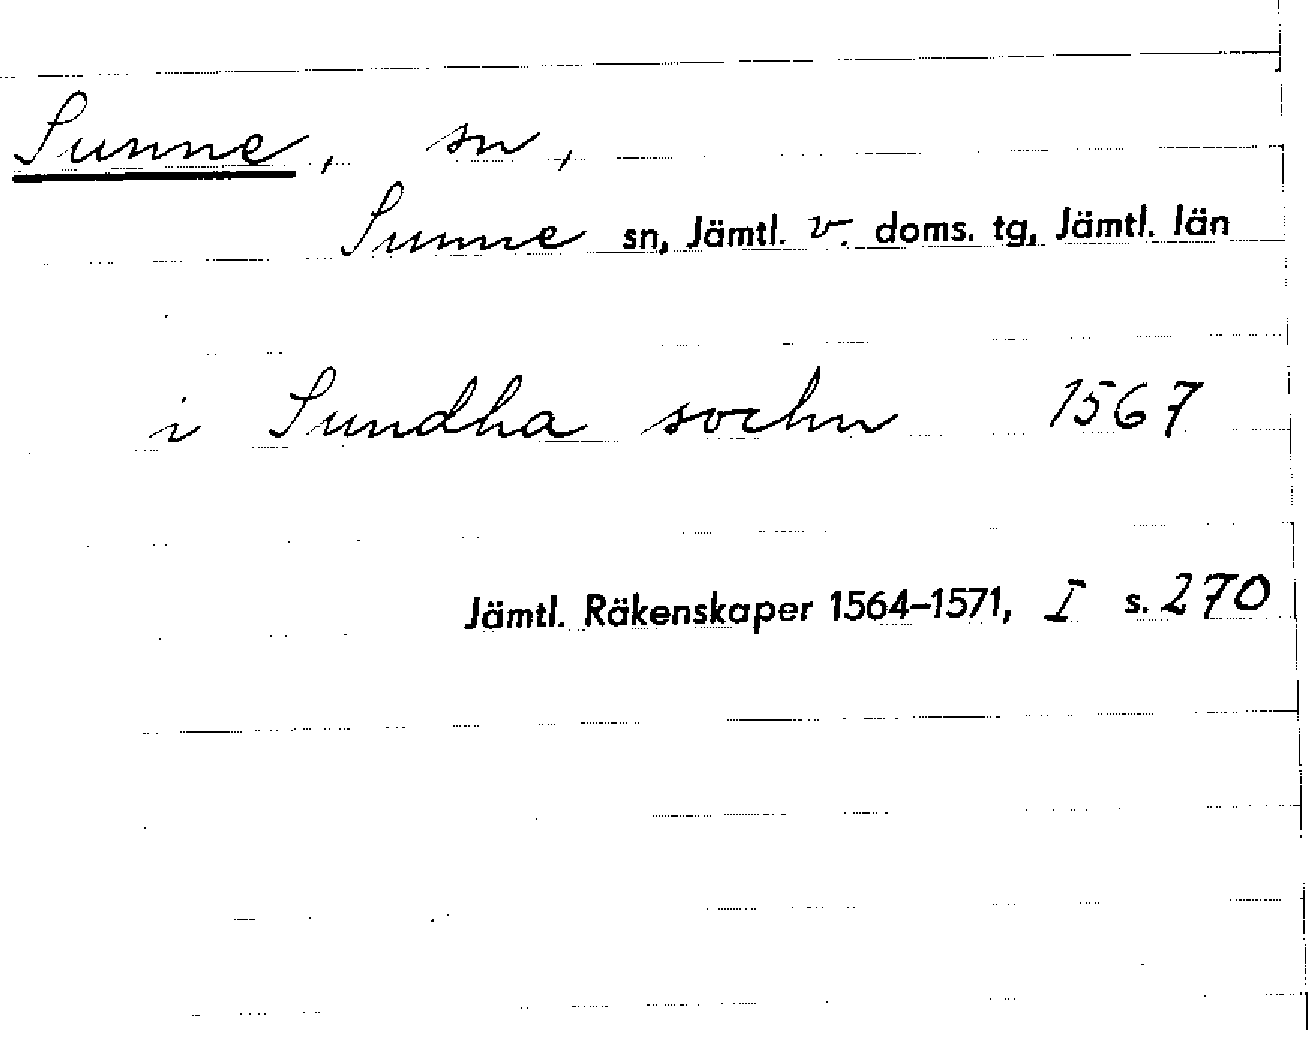 Sunne, sn,
Sunne sn, Jämtl. v. doms. tg, Jämtl. län
i Sundha sochn 1567
Jämtl. Räkenskaper 1564–1571, I s. 270